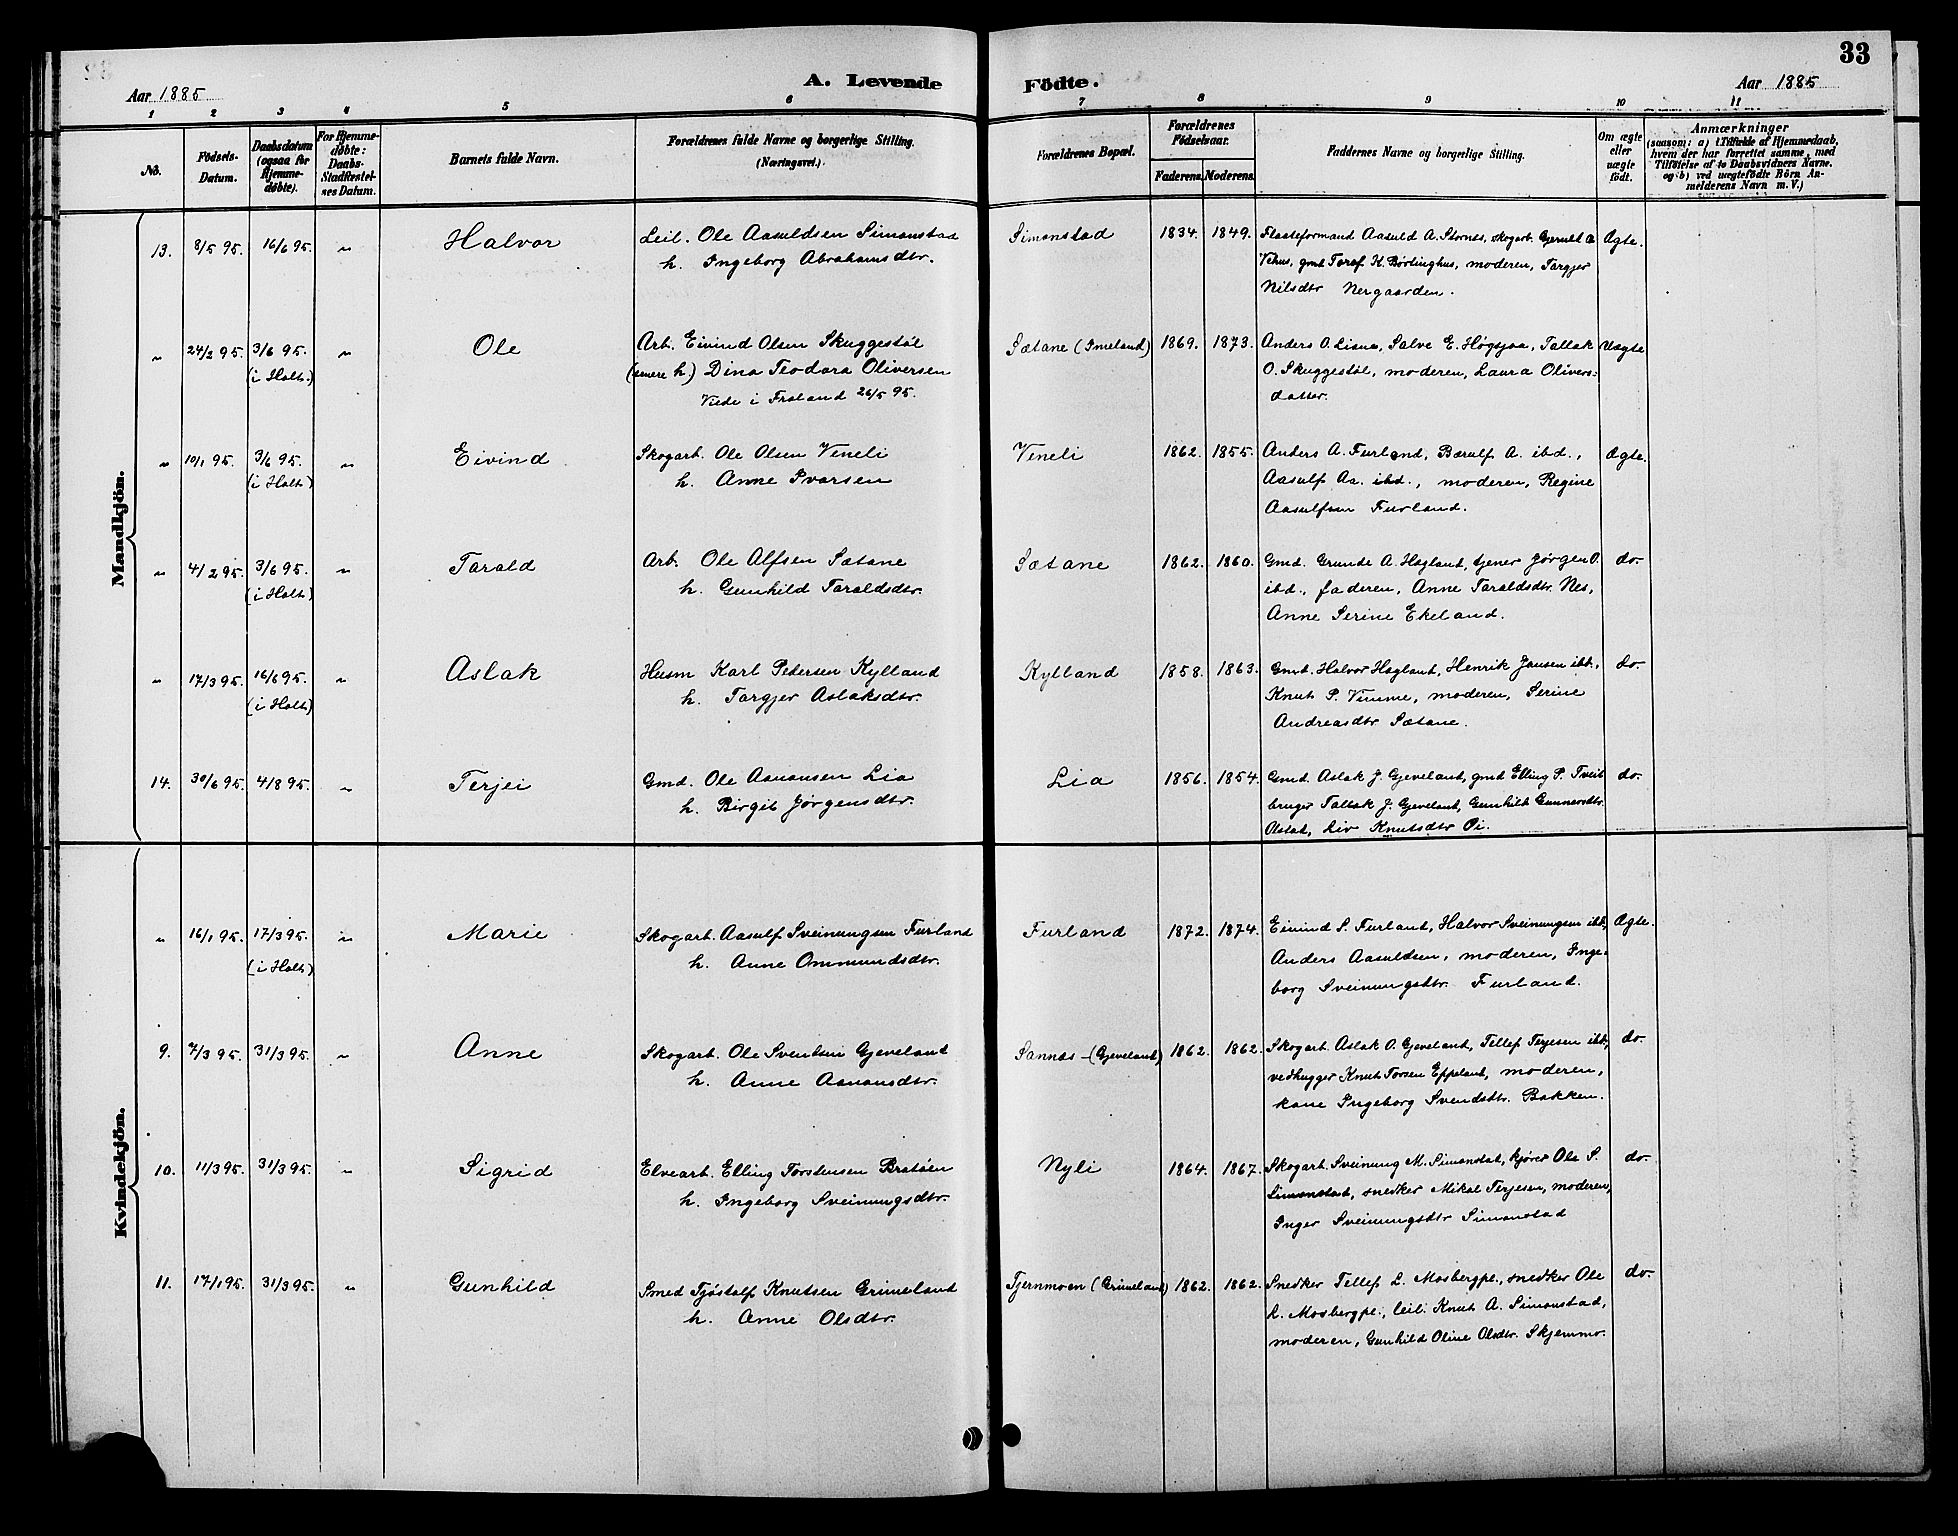 33
Aar 1885
A. Levende Födte.
Aar 1885
1 2 3 4 5 6 7 8 9 10 11
No.
Födsels-Datum.
Daabsdatum (ogsaa for Hjemme-døbte).
For Hjemme-døbte: Daabs-Stadfæstel-nes Datum.
Barnets fulde Navn.
Forældrenes fulde Navne og borgerlige Stilling. (Næringsvei.)
Forældrenes Bopæl.
Forældrenes Fødselsaar.
Faderens. Moderens.
Faddernes Navne og borgerlige Stilling.
Om ægte eller uægte født.
Anmærkninger
(saasom: a) i Tilfælde af Hjemmedaab,
hvem der har forrettet samme, med
Tilføielse af to Daabsvidners Navne.
og b) ved uægtefødte Börn An-
melderens Navn m. V.)
Mandkjön.
13. 8/5 95. 16/6 95. " Halvor
Leil. Ole Aasuldsen Simonstad
h. Ingeborg Abrahamsdtr.
Simonstad 1834. 1849.
Flaateformand Aasuld A. Stornes, skogarb. Gjeruld O.
Vehus, gmd Toraf K. Børtinghus, moderen, Targjer
Nilsdtr Nergaarden.
Ægte.
" 24/2 95. 3/6 95. (i Holt.) " Ole
Arb. Eivind Olsen Skuggestøl
(senere h.) Dina Teodora Oliversen
Viede i Froland 26/5 95.
Sætane (Imeland) 1869. 1873.
Anders O. Lisne, Salve E. Høgsjaa, Tallak
O. Skuggestøl, moderen, Laura Olivers-
datter.
Uægte
" 10/1 95. 3/6 95. (i Holt) " Eivind
Skogarb. Ole Olsen Veneli
h. Anne Ivarsen
Veneli 1862. 1855.
Anders A. Furland, Bærulf A. ibd.,
Aasulf Aa. ibd., moderen, Regine
Aasulfsen Furland.
Ægte.
" 4/2 95. 3/6 95. (i Holt) " Tarald
Arb. Ole Alfsen Sætane
h. Gunhild Taraldsdtr.
Sætane 1862. 1860.
Gmd. Grunde A. Hagland, tjener Jørgen O.
ibd., faderen, Anne Taraldsdtr. Nes,
Anne Serine Ekeland.
do.
" 17/3 95. 16/6 95. (i Holt) " Aslak
Husm Karl Pedersen Kylland
h. Targjer Aslaksdtr.
Kylland 1858. 1863.
Gmd. Halvor Hagland, Henrik Jansen ibd.,
Knut P. Vimme, moderen, Serine
Andreasdtr Sætane.
do.
14. 30/6 95. 4/8 95. " Terjei
Gmd. Ole Aanonsen Lia
h. Birgit Jørgensdtr.
Lia 1856. 1854.
Gmd. Aslak J. Gjeveland, gmd Elling P. Tveit
bruger Tallak J. Gjeveland, Gunhild Gunnersdtr.
Olstad, Liv Knutsdtr Oi.
do.
Kvindekjön.
" 16/1 95. 17/3 95. (i Holt) " Marie
Skogarb. Aasulf Sveinungsen Furland
h. Anne Ommundsdtr.
Furland 1872. 1874.
Eivind S. Furland, Halvor Sveinungsen ibd.,
Anders Aasuldsen, moderen, Inge-
borg Sveinungsdtr. Furland.
Ægte.
9. 7/3 95. 31/3 95. " Anne
Skogarb. Ole Svendsen Gjeveland
h. Anne Aanonsdtr.
Sannes (Gjeveland) 1862. 1862.
Skogarb. Aslak O. Gjeveland, Tellef Terjesen ibd.,
vedhugger Knut Torsen Eppeland, moderen,
kone Ingeborg Svendsdtr. Bakken.
do.
10. 11/3 95. 31/3 95. " Sigrid
Elvearb. Elling Torstensen Bratøen
h. Ingeborg Sveinungsdtr.
Nyli 1864. 1867.
Skogarb. Sveinung M. Simonstad, kjører Ole S.
Simonstad, snedker Mikal Terjesen, moderen,
Inger Sveinungsdtr Simonstad
do.
11. 17/1 95. 31/3 95. " Gunhild
Smed Tjøstolf Knutsen Grimeland
h. Anne Olsdtr.
Tjernmoen (Grimeland) 1862. 1862.
Snedker Tellef L. Mosbergpl., snedker Ole
L. Mosbergpl., leil. Knut A. Simonstad,
moderen, Gunhild Oline Olsdtr. Skjemmo.
do.